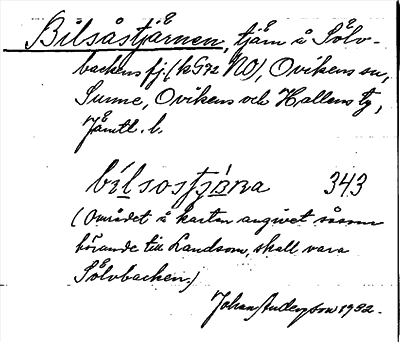 Bilsåstjärnen, tjärn i Sölv-
backens fj. (kG72 NO), Ovikens sn,
Sunne, Ovikens och Hallens tg,
Jämtl. l.
bilsostjäna 343
(Området å kartan angivet såsom
hörande till Landsom, skall vara
Sölvbacken.)
Johan Anderson 1932.